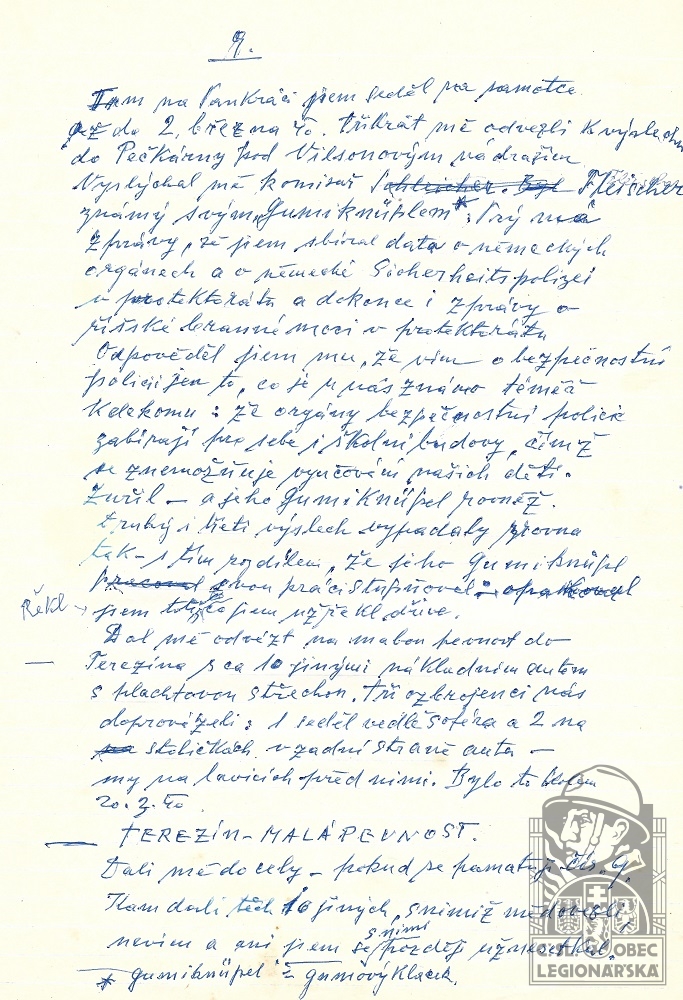 9.
Tam na Pankráci jsem seděl na samotce
až do 2. března 40. Třikrát mě odvezli k výslechu
do Pečkárny pod Vilsonovým nádražím
Vyslýchal mě komisař Schleicher. Byl Fleischer
známý svým „Gumiknüplem“*: Prý má
zprávy, že jsem sbíral data o německých
orgánech a o německé Sicherheitspolizei
v protektorátu a dokonce i zprávy o
říšské branné moci v protektorátu
Odpověděl jsem mu, že vím o bezpečnostní
policii jen to, co je u nás známo téměř
kdekomu: že orgány bezpečnostní policie
zabírají pro sebe i školní budovy, čímž
se znemožňuje vyučování našich dětí.
Zuřil – a jeho Gumiknüpel rovněž.
Druhý i třetí výslech vypadaly zrovna
tak – s tím rozdílem, že jeho Gumiknüpel
Pracoval svou práci stupňoval: opakoval
Řekl jsem totéž co jsem už řekl dříve.
Dal mě odvézt na malou pevnost do
Terezína s ca 10 jinými nákladním autem
s plachtovou střechou. Tři ozbrojenci nás
doprovázeli: 1 seděl vedle šoféra a 2 na
stoličkách v zadní straně auta –
my na lavicích před nimi. Bylo to
20.3.40
TEREZÍN – MALÁ PEVNOST.
Dali mě do cely – pokud se pamatuji čís. 9.
Kam dali těch 10 jiných, s nimiž mě dovezli,
nevím a ani jsem se s nimi později už nesetkal.
* gumiknüpel = gumový klacek.
ČESKOSLOVENSKÁ OBEC
LEGIONÁŘSKÁ